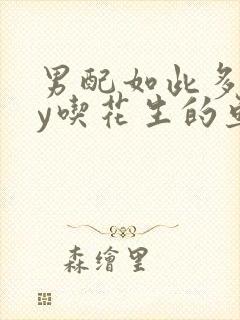 男配如此多
y喫花生的
森繪里